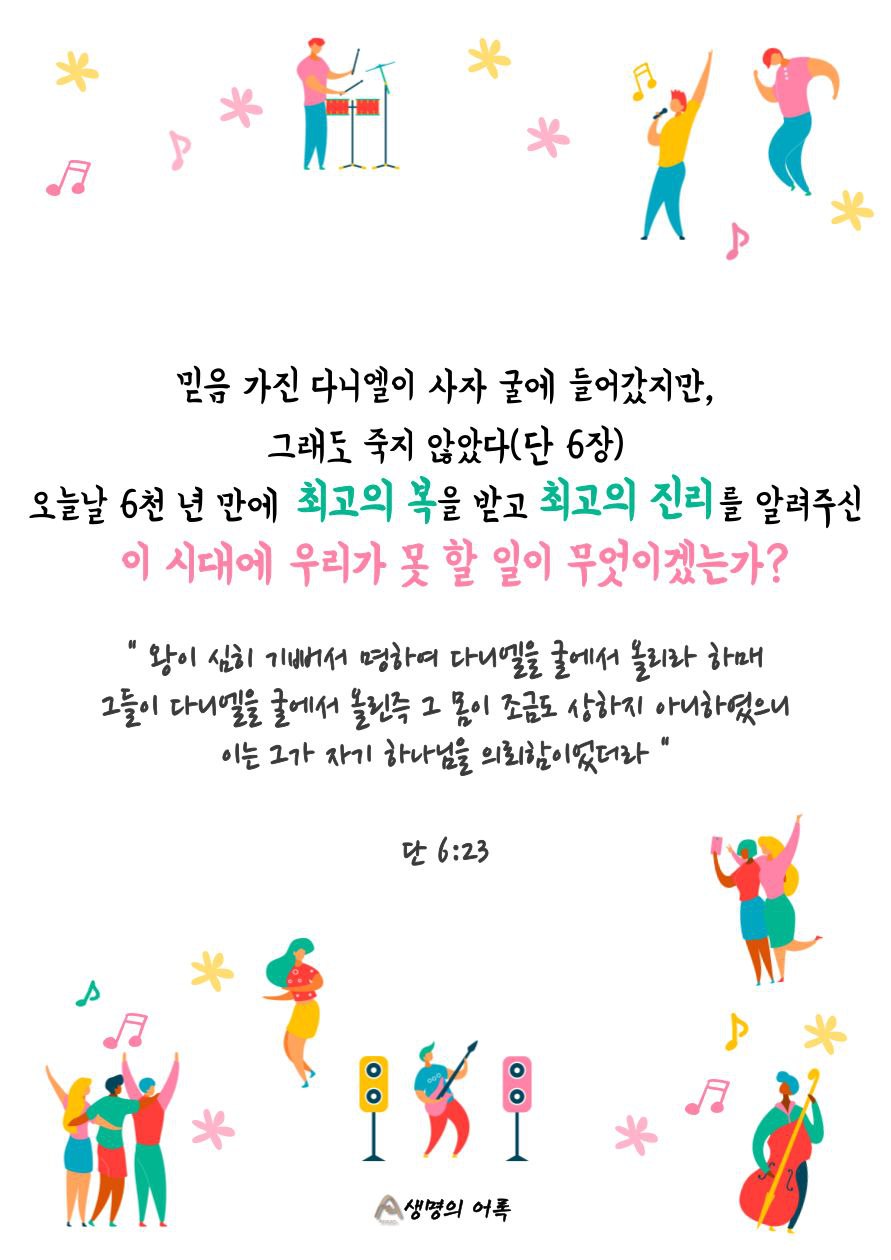 믿음 가진 다니엘이 사자 굴에 들어갔지만,
그래도 죽지 않았다(단 6장)
오늘날 6천 년 만에 최고의 복을 받고 최고의 진리를 알려주신
이 시대에 우리가 못 할 일이 무엇이겠는가?
" 왕이 심히 기뻐서 명하여 다니엘을 굴에서 올리라 하매
그들이 다니엘을 굴에서 올린즉 그 몸이 조금도 상하지 아니하였으니
이는 그가 자기 하나님을 의뢰함이었더라 "
단 6:23
생명의 어록